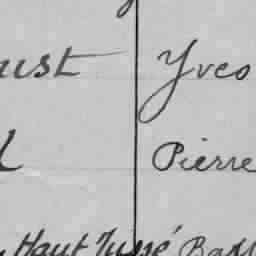 ust Yves
Pierre
Haut Jussé Bass